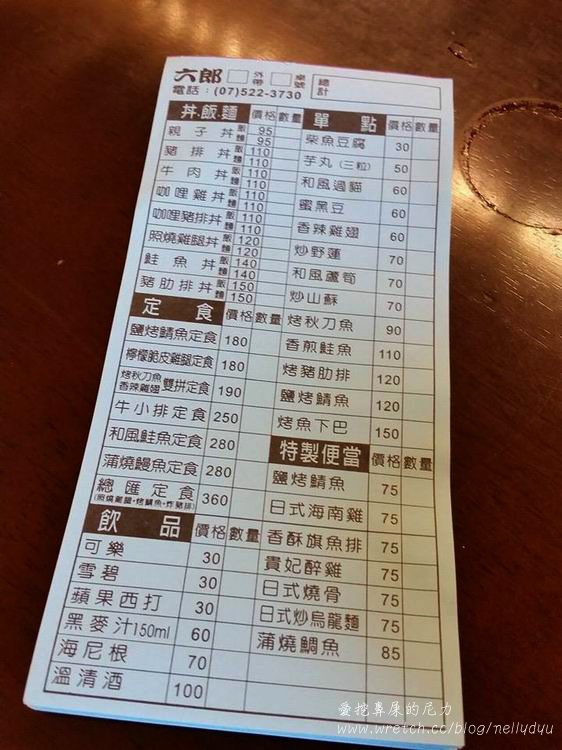 六郎 □外帶 □桌號 總計
電話：(07)522-3730
丼.飯.麵 價格 數量
親子丼 飯 95
麵 95
豬排丼 飯 110
麵 110
牛肉丼 飯 110
麵 110
咖哩雞丼 飯 110
麵 110
咖哩豬排丼 飯 110
麵 110
照燒雞腿丼 飯 120
麵 120
鮭魚丼 飯 140
麵 140
豬肋排丼 飯 150
麵 150
定食 價格 數量
鹽烤鯖魚定食 180
檸檬脆皮雞腿定食 180
烤秋刀魚 香辣雞翅 雙拼定食 190
牛小排定食 250
和風鮭魚定食 280
蒲燒鰻魚定食 280
總匯定食 360
(照燒雞腿+烤鯖魚+炸豬排)
飲品 價格 數量
可樂 30
雪碧 30
蘋果西打 30
黑麥汁150ml 60
海尼根 70
溫清酒 100
單點 價格 數量
柴魚豆腐 30
芋丸(三粒) 50
和風過貓 60
蜜黑豆 60
香辣雞翅 60
炒野蓮 70
和風蘆筍 70
炒山蘇 70
烤秋刀魚 90
香煎鮭魚 110
烤豬肋排 120
鹽烤鯖魚 120
烤魚下巴 150
特製便當 價格 數量
鹽烤鯖魚 75
日式海南雞 75
香酥旗魚排 75
貴妃醉雞 75
日式燒骨 75
日式炒烏龍麵 75
蒲燒鯛魚 85
愛挖鼻屎的尼力
www.wretch.cc/blog/nellydyu